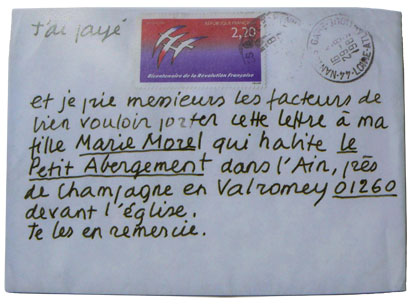 J'ai payé
REPUBLIQUE FRANÇAISE
2,20
Bicentenaire de la Révolution Française
44-LOIRE-AT
et je prie messieurs les facteurs de
bien vouloir porter cette lettre à ma
fille Marie Morel qui habite le
Petit Abergement dans l'Ain, près
de Champagne en Valromey 01260
devant l'église.
Je les en remercie.